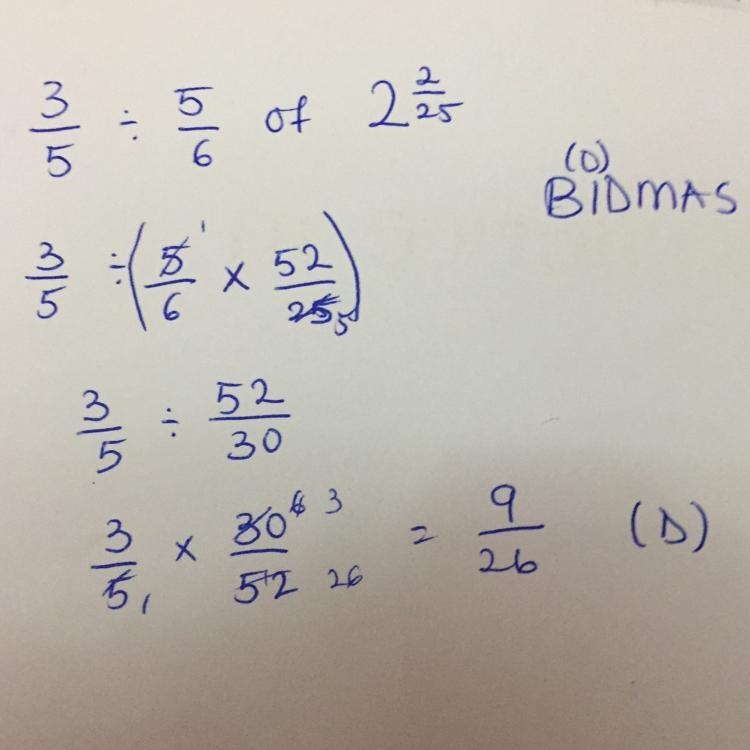 3/5 ÷ 5/6 of 2 2/25
(O)
BIDMAS
3/5 ÷ (5/6 1 × 52/25 5)
3/5 ÷ 52/30
3/5 1 × 30/52 6 3 26 = 9/26 (D)